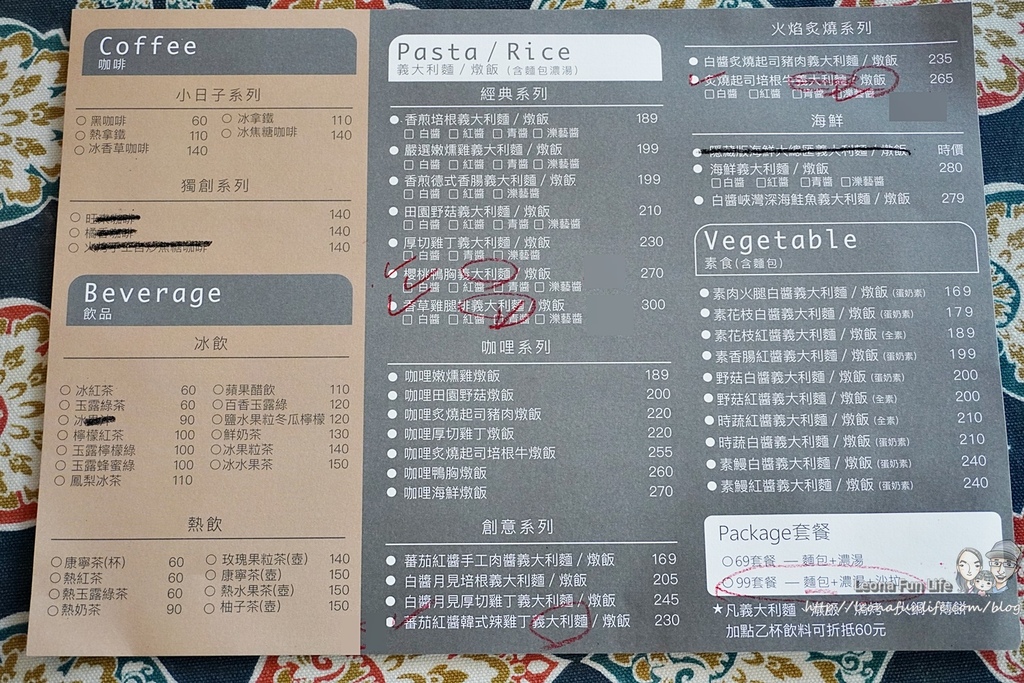 Coffee
咖啡
小日子系列
○ 黑咖啡 60 ○ 冰拿鐵 110
○ 熱拿鐵 110 ○ 冰焦糖咖啡 140
○ 冰香草咖啡 140
獨創系列
140
140
140
Beverage
飲品
冰飲
○ 冰紅茶 60 ○蘋果醋飲 110
○ 玉露綠茶 60 ○百香玉露綠 120
○ 冰 90 ○鹽水果粒冬瓜檸檬 120
○ 檸檬紅茶 100 ○鮮奶茶 130
○ 玉露檸檬綠 100 ○冰果粒茶 140
○ 玉露蜂蜜綠 100 ○冰水果茶 150
○ 鳳梨冰茶 110
熱飲
○康寧茶(杯) 60 ○ 玫瑰果粒茶(壺) 140
○熱紅茶 60 ○ 康寧茶(壺) 150
○熱玉露綠茶 60 ○ 熱水果茶(壺) 150
○熱奶茶 90 ○ 柚子茶(壺) 150
Pasta / Rice
義大利麵 / 燉飯 (含麵包濃湯)
經典系列
香煎培根義大利麵 / 燉飯 189
□ 白醬 □ 紅醬 □ 青醬 □ 漅藝醬
嚴選嫩燻雞義大利麵 / 燉飯 199
□ 白醬 □ 紅醬 □ 青醬 □ 漅藝醬
香煎德式香腸義大利麵 / 燉飯 199
□ 白醬 □ 紅醬 □ 青醬 □ 漅藝醬
田園野菇義大利麵 / 燉飯 210
□ 白醬 □ 紅醬 □ 青醬 □ 漅藝醬
厚切雞丁義大利麵 / 燉飯 230
□ 白醬 □ 紅醬 □ 青醬 □ 漅藝醬
櫻桃鴨胸義大利麵 / 燉飯 270
□ 白醬 □ 紅醬 □ 青醬 □ 漅藝醬
香草雞腿排義大利麵 / 燉飯 300
□ 白醬 □ 紅醬 □ 青醬 □ 漅藝醬
咖哩系列
咖哩嫩燻雞燉飯 189
咖哩田園野菇燉飯 200
咖哩炙燒起司豬肉燉飯 220
咖哩厚切雞丁燉飯 220
咖哩炙燒起司培根牛燉飯 255
咖哩鴨胸燉飯 260
咖哩海鮮燉飯 270
創意系列
蕃茄紅醬手工肉醬義大利麵 / 燉飯 169
白醬月見培根義大利麵 / 燉飯 205
白醬月見厚切雞丁義大利麵 / 燉飯 245
蕃茄紅醬韓式辣雞丁義大利麵 / 燉飯 230
火焰炙燒系列
白醬炙燒起司豬肉義大利麵 / 燉飯 235
炙燒起司培根牛義大利麵 / 燉飯 265
□白醬 □紅醬 □青醬 □漅藝醬
海鮮
隱藏版海鮮大總匯義大利麵 / 燉飯 時價
海鮮義大利麵 / 燉飯 280
□白醬 □紅醬 □青醬 □漅藝醬
白醬峽灣深海鮭魚義大利麵 / 燉飯 279
Vegetable
素食(含麵包)
素肉火腿白醬義大利麵 / 燉飯 (蛋奶素) 169
素花枝白醬義大利麵 / 燉飯 (蛋奶素) 179
素花枝紅醬義大利麵 / 燉飯 (全素) 189
素香腸紅醬義大利麵 / 燉飯 (蛋奶素) 199
野菇白醬義大利麵 / 燉飯 (蛋奶素) 200
野菇紅醬義大利麵 / 燉飯 (全素) 200
時蔬紅醬義大利麵 / 燉飯 (全素) 210
時蔬白醬義大利麵 / 燉飯 (蛋奶素) 210
素鰻白醬義大利麵 / 燉飯 (蛋奶素) 240
素鰻紅醬義大利麵 / 燉飯 (蛋奶素) 240
Package套餐
○69套餐 — 麵包+濃湯
○99套餐 — 麵包+濃湯
Leona Fun Life
http://leonafunlife.com/blog
★凡義大利麵
加點乙杯飲料可折抵60元